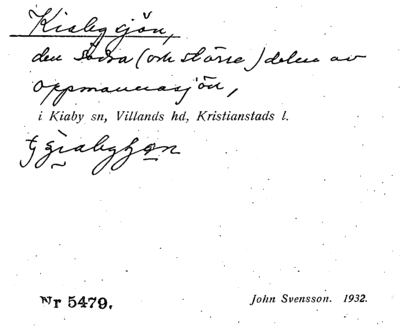 Kiabysjön,
den södra (och större) delen av
Oppmannasjön,
i Kiaby sn, Villands hd, Kristianstads l.
Nr 5479.
John Svensson. 1932.